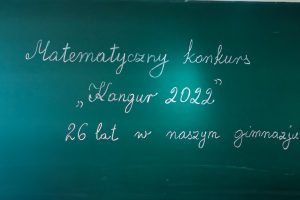 Matematyczny konkurs
„Kangur 2022”
26 lat w naszym gimnazju